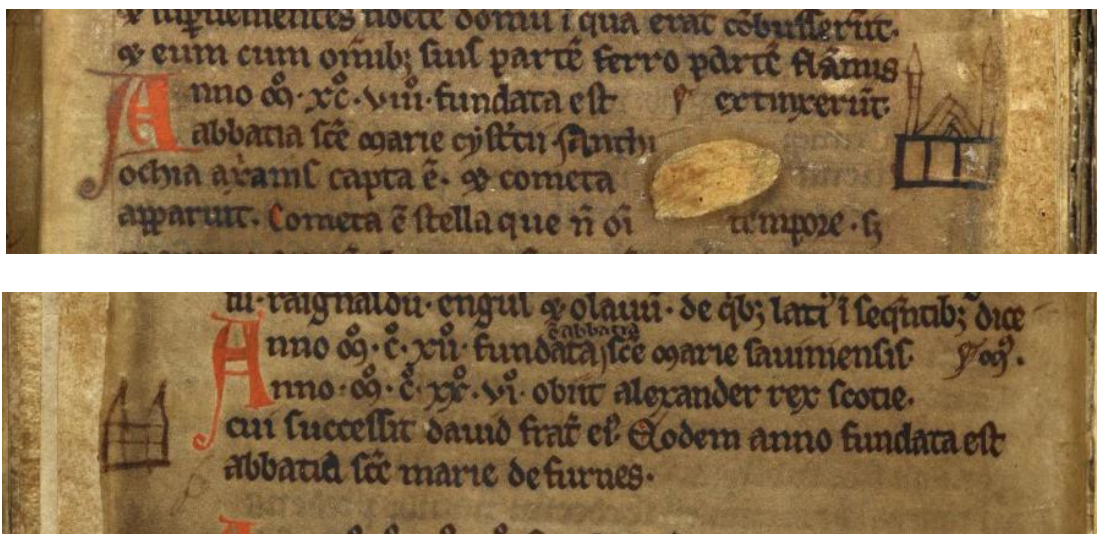 ⁊ supuenientes nocte domū ī qua erat cōbusserūt.
⁊ eum cum om̄ib; suis partē ferro partē flāmis
Anno m̊. xc̊. viiı. fundata est extinxerūt.
abbatia sc̄e marie cystcii. Anthi
ochia a xp̄ianis capta ē. ⁊ cometa
apparuit. Cometa ē stella que n̄ oī tempore. s;
anno m̊. c̊. xıı̊. fundata ē abbatia sc̄e marie sauiniensis.
Anno. m̊. c̊. xx̊. vı̊. obiit alexander rex scotie.
cui successit dauid frat̄ eꝰ Eodem anno fundata est
abbatia sc̄e marie de furnes.